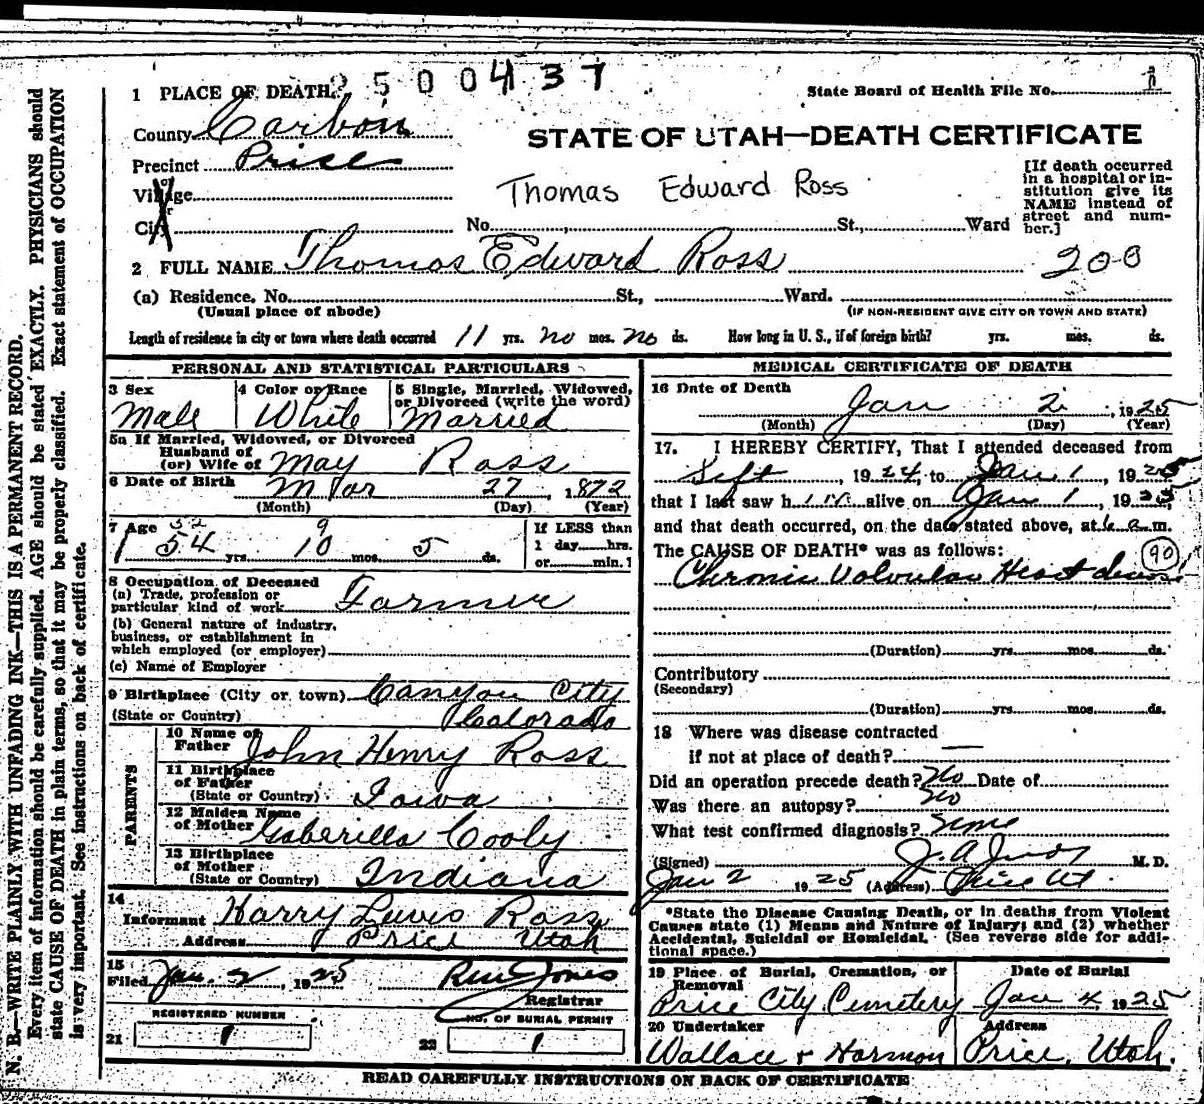 2500437
1 PLACE OF DEATH
State Board of Health File No. 1
County Carbon
STATE OF UTAH—DEATH CERTIFICATE
Precinct Price
or
Village
Thomas Edward Ross
[If death occurred in a hospital or institution give its NAME instead of street and number.]
or
City No. St., Ward
2 FULL NAME Thomas Edward Ross 200
(a) Residence, No. St., Ward.
(Usual place of abode) (IF NON-RESIDENT GIVE CITY OR TOWN AND STATE)
Length of residence in city or town where death occurred 11 yrs. no mos. no ds. How long in U. S., if of foreign birth? yrs. mos. ds.
PERSONAL AND STATISTICAL PARTICULARS
3 Sex 4 Color or Race 5 Single, Married, Widowed, or Divorced (write the word)
Male White Married
5a If Married, Widowed, or Divorced
Husband of
(or) Wife of May Ross
6 Date of Birth Mar 27, 1872
(Month) (Day) (Year)
7 Age 52 9 If LESS than
54 yrs. 10 mos. 5 ds. 1 day hrs.
or min. ?
8 Occupation of Deceased
(a) Trade, profession or
particular kind of work Farmer
(b) General nature of industry,
business, or establishment in
which employed (or employer)
(c) Name of Employer
9 Birthplace (City or town) Canyon City
(State or Country) Colorado
PARENTS
10 Name of
Father John Henry Ross
11 Birthplace
of Father
(State or Country) Iowa
12 Maiden Name
of Mother Gaberilla Cooly
13 Birthplace
of Mother
(State or Country) Indiana
14
Informant Harry Lewis Ross
Address Price Utah
15
Filed Jan. 2, 1925 Jones
Registrar
REGISTERED NUMBER NO. OF BURIAL PERMIT
21 1 22 1
MEDICAL CERTIFICATE OF DEATH
16 Date of Death
Jan 2, 1925
(Month) (Day) (Year)
17. I HEREBY CERTIFY, That I attended deceased from
Sept, 1924, to Jan 1, 1925
that I last saw him alive on Jan 1, 1925,
and that death occurred, on the date stated above, at 6 a.m.
The CAUSE OF DEATH* was as follows: 90
Chronic Valvular Heart disease
(Duration) yrs. mos. ds.
Contributory
(Secondary)
(Duration) yrs. mos. ds.
18 Where was disease contracted
if not at place of death? —
Did an operation precede death? No Date of
Was there an autopsy? no
What test confirmed diagnosis? none
(Signed) J. A. M. D.
Jan 2 1925 (Address) Price Ut.
*State the Disease Causing Death, or in deaths from Violent
Causes state (1) Means and Nature of Injury; and (2) whether
Accidental, Suicidal or Homicidal. (See reverse side for additional space.)
19 Place of Burial, Cremation, or Removal Date of Burial
Price City Cemetery Jan 4 1925
20 Undertaker Address
Wallace & Harmon Price, Utah.
READ CAREFULLY INSTRUCTIONS ON BACK OF CERTIFICATE
N. B.—WRITE PLAINLY WITH UNFADING INK—THIS IS A PERMANENT RECORD.
Every item of information should be carefully supplied. AGE should be stated EXACTLY. PHYSICIANS should
state CAUSE OF DEATH in plain terms, so that it may be properly classified. Exact statement of OCCUPATION
is very important. See instructions on back of certificate.